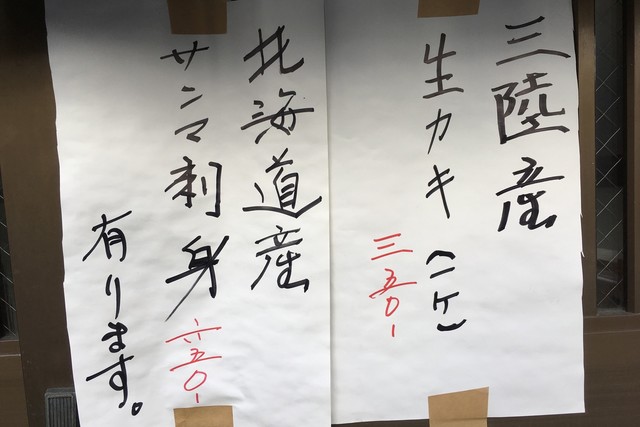 三陸産
生カキ(二ケ)
三五〇ー
北海道産
サンマ刺身
六五〇ー
有ります。